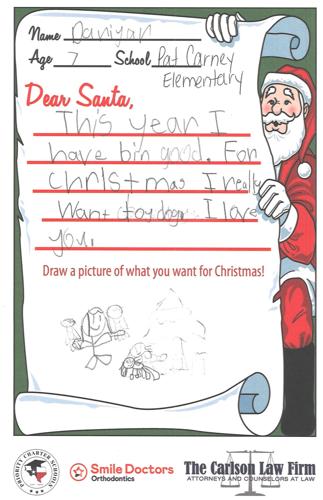 Name Daniyar
Age 7 School Pat Carney
Elementary
Dear Santa,
This year I
have bin good. For
Christmas I really
Want a toy dog. I love
you.
Draw a picture of what you want for Christmas!
PRIORITY CHARTER SCHOOLS
Smile Doctors
Orthodontics
The Carlson Law Firm
ATTORNEYS AND COUNSELORS AT LAW